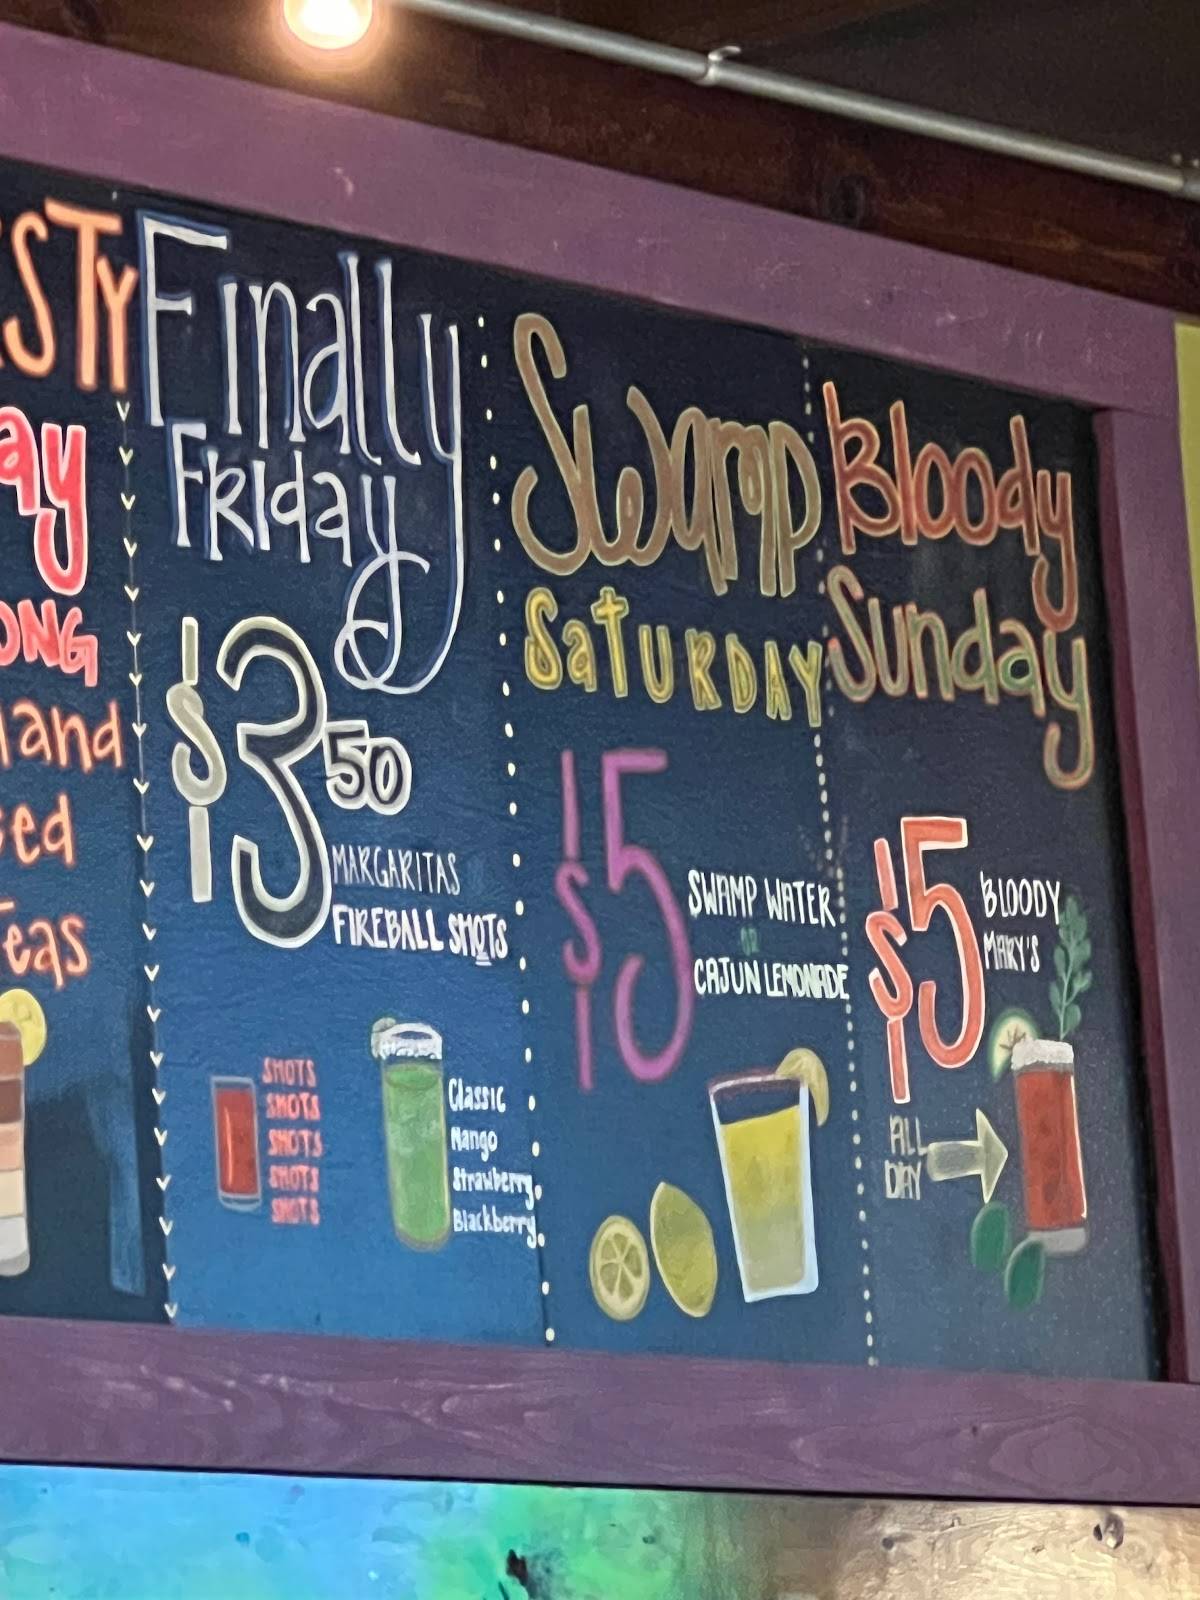 STY
ay
ONG
and
ced
Teas
Finally
Friday
$3 50
MARGARITAS
FIREBALL SHOTS
SHOTS
SHOTS
SHOTS
SHOTS
SHOTS
Classic
Mango
Strawberry
Blackberry
Swamp
SaTURDAY
$5
SWAMP WATER
OR
CAJUN LEMONADE
Bloody
Sunday
$5
BLOODY
MARY'S
ALL
DAY